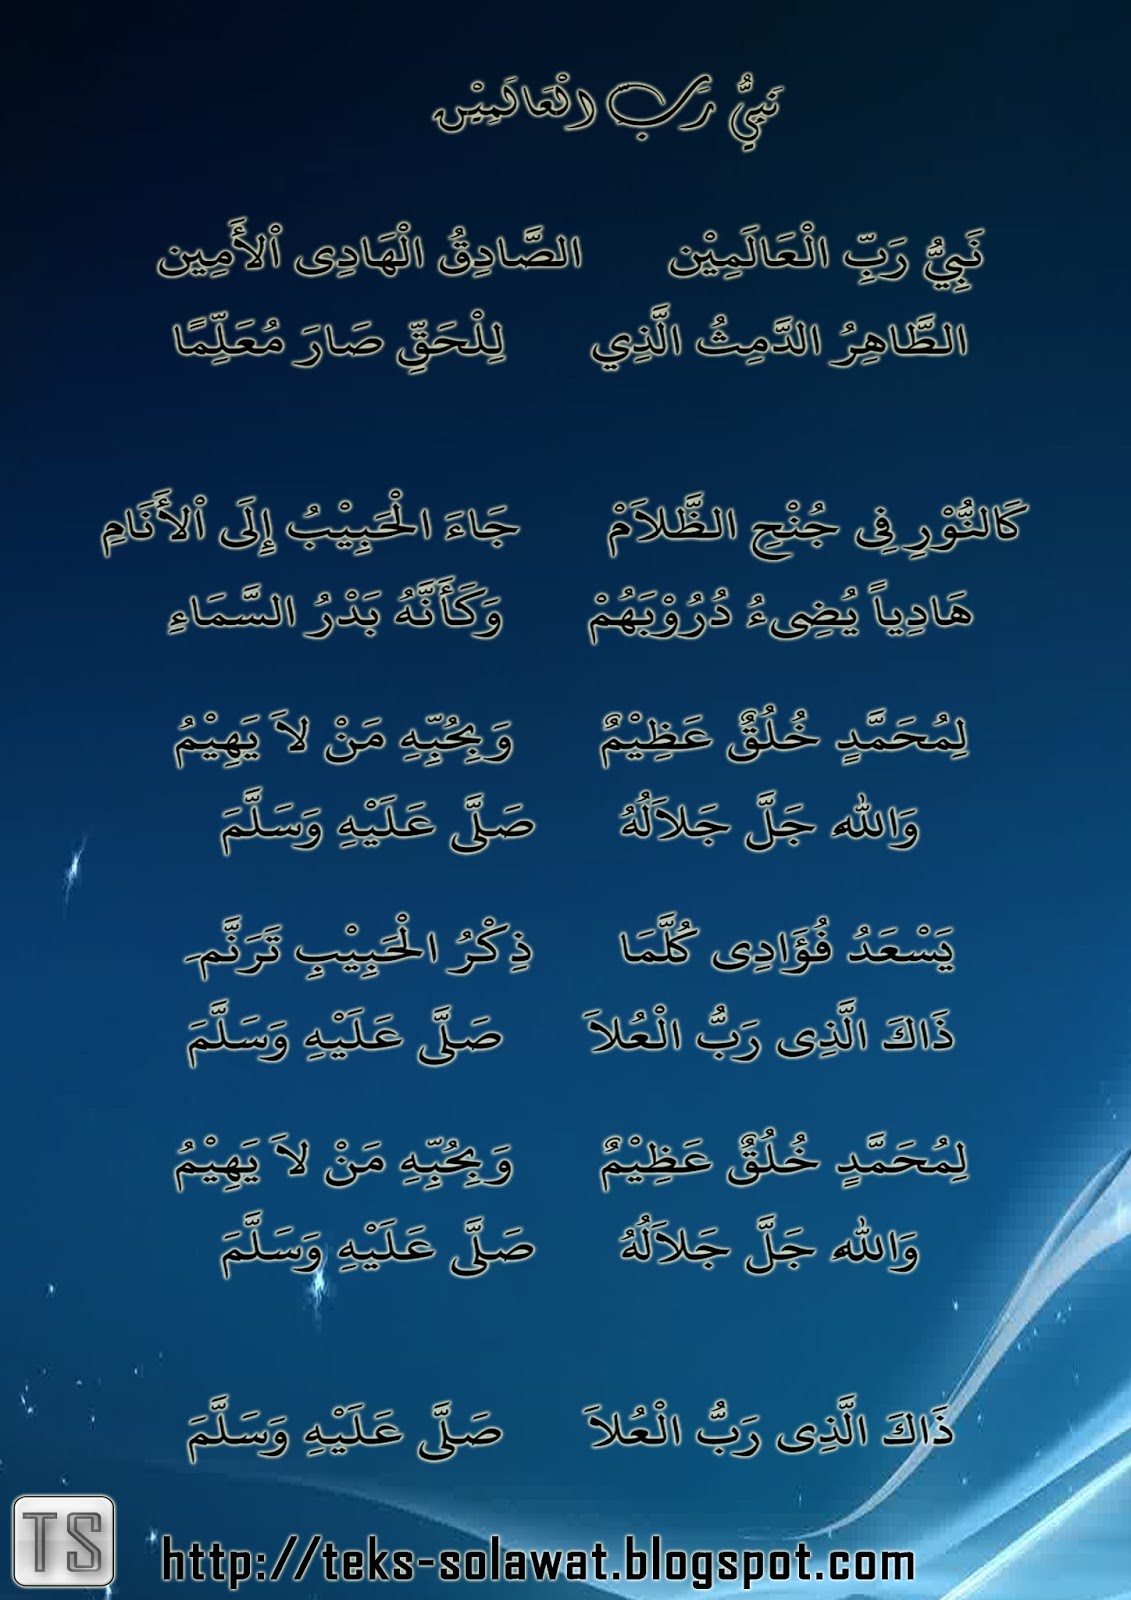 نَبِيُّ رَبِّ الْعَالَمِيْن
نَبِيُّ رَبِّ الْعَالَمِيْن الصَّادِقُ الْهَادِى اْلأَمِين
الطَّاهِرُ الدَّمِثُ الَّذِي لِلْحَقِّ صَارَ مُعَلِّمًا
كَالنُّوْرِ فِى جُنْحِ الظَّلاَمْ جَاءَ الْحَبِيْبُ إِلَى اْلأَنَامِ
هَادِياً يُضِىءُ دُرُوْبَهُمْ وَكَأَنَّهُ بَدْرُ السَّمَاءِ
لِمُحَمَّدٍ خُلُقٌ عَظِيْمٌ وَبِحُبِّهِ مَنْ لاَ يَهِيْمُ
وَالله جَلَّ جَلاَلُهُ صَلَّى عَلَيْهِ وَسَلَّمَ
يَسْعَدُ فُؤَادِى كُلَّمَا ذِكْرُ الْحَبِيْبِ تَرَنَّمَ
ذَاكَ الَّذِى رَبُّ الْعُلاَ صَلَّى عَلَيْهِ وَسَلَّمَ
لِمُحَمَّدٍ خُلُقٌ عَظِيْمٌ وَبِحُبِّهِ مَنْ لاَ يَهِيْمُ
وَالله جَلَّ جَلاَلُهُ صَلَّى عَلَيْهِ وَسَلَّمَ
ذَاكَ الَّذِى رَبُّ الْعُلاَ صَلَّى عَلَيْهِ وَسَلَّمَ
TS http://teks-solawat.blogspot.com